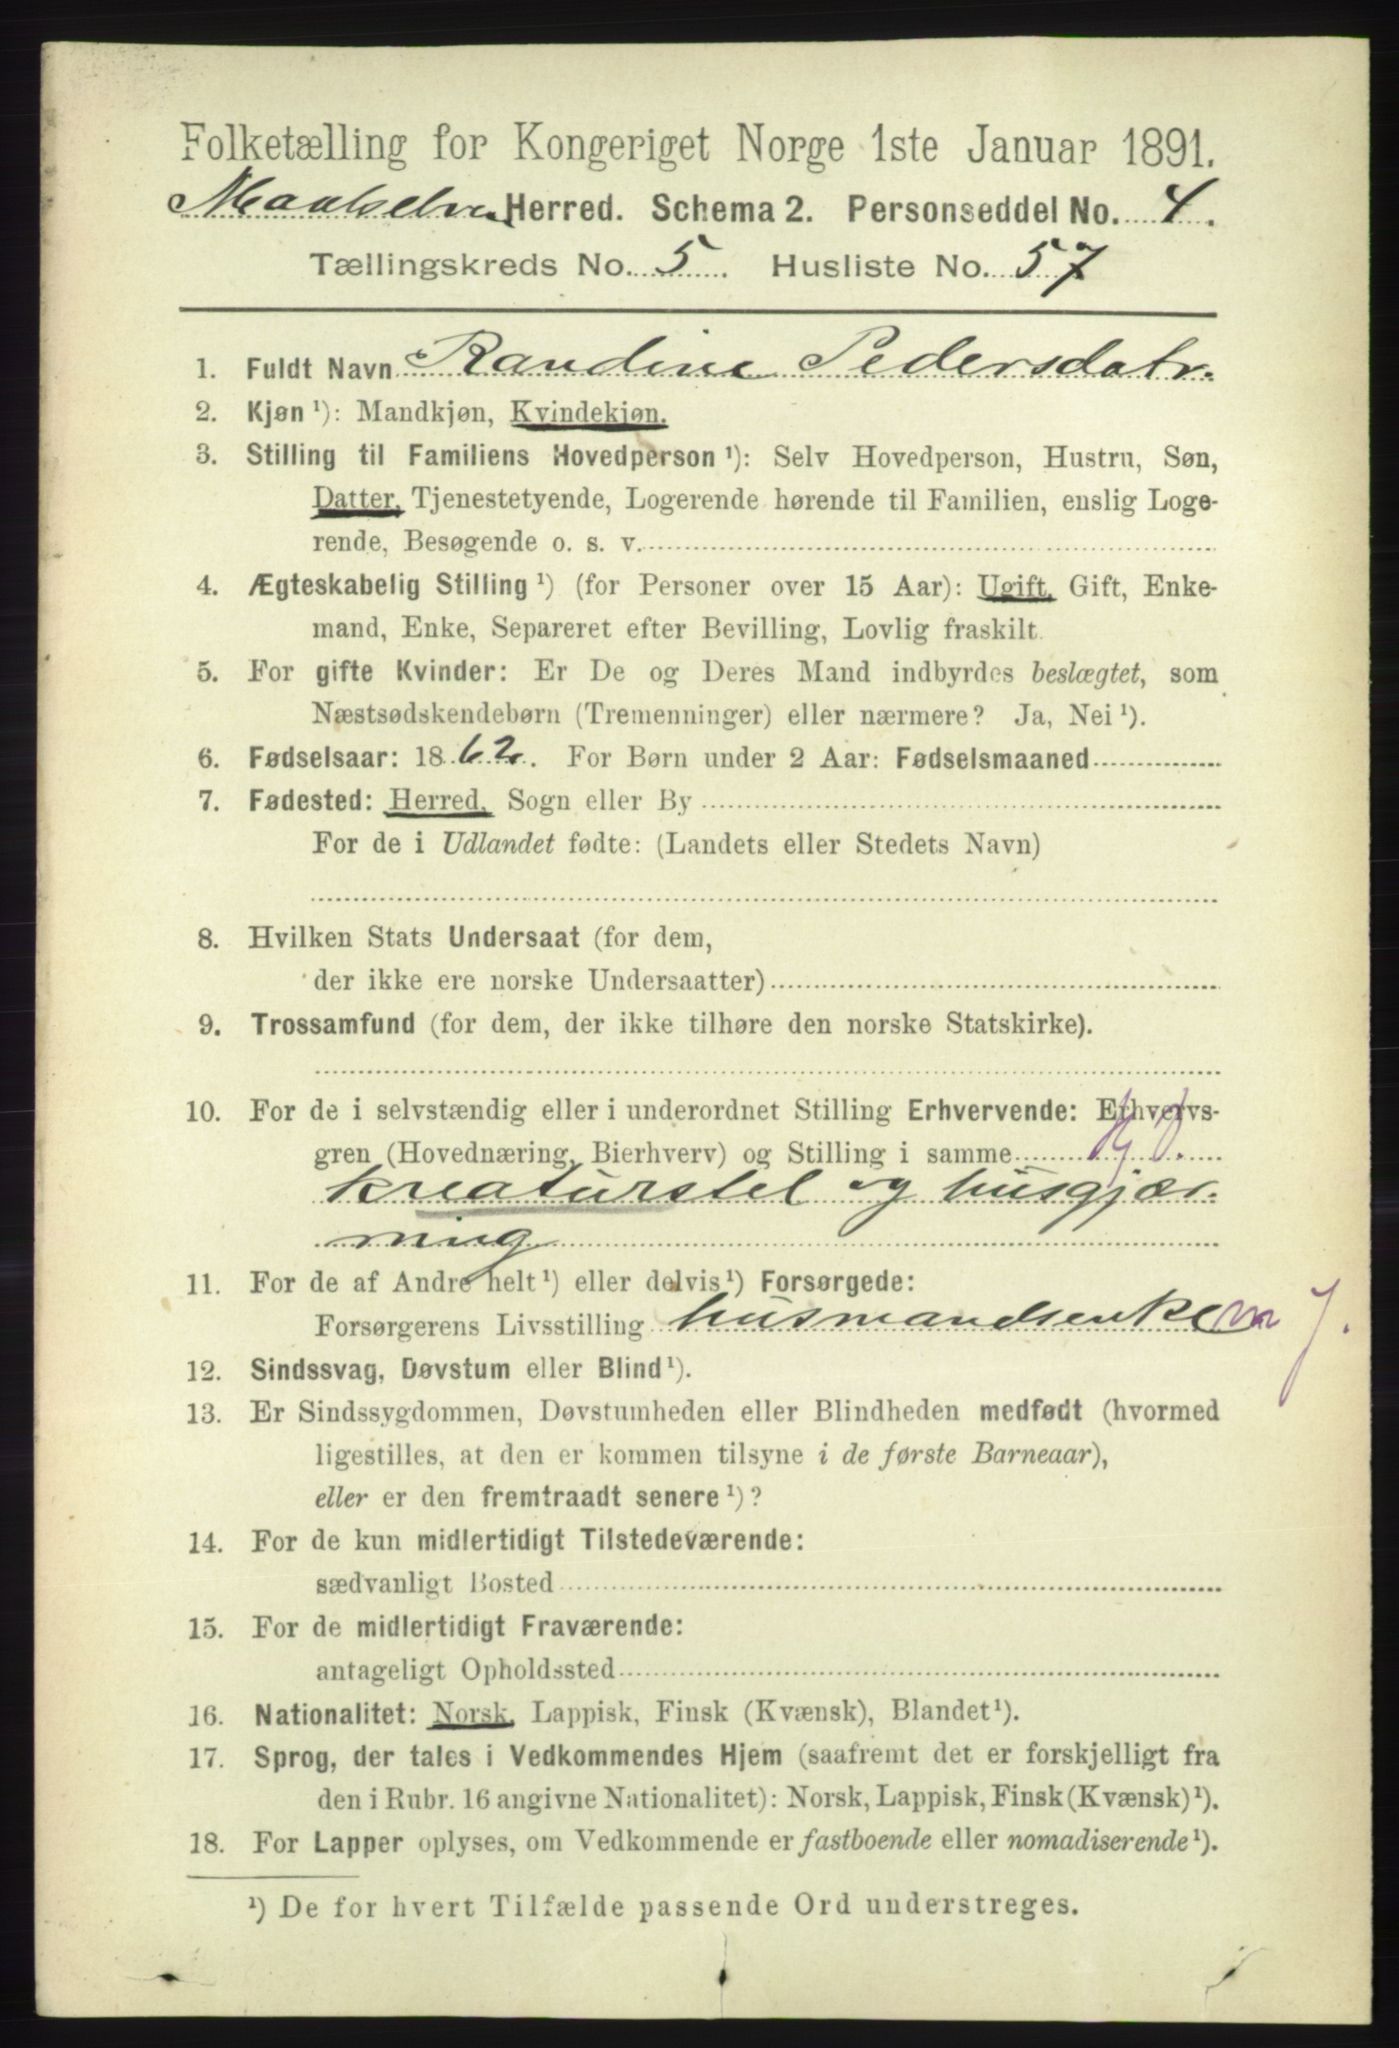 Folketælling for Kongeriget Norge 1ste Januar 1891.
Maalselven Herred. Schema 2. Personseddel No. 4.
Tællingskreds No. 5. Husliste No. 57
1. Fuldt Navn Randine Pedersdatr.
2. Kjøn ¹): Mandkjøn, Kvindekjøn.
3. Stilling til Familiens Hovedperson ¹): Selv Hovedperson, Hustru, Søn,
Datter, Tjenestetyende, Logerende hørende til Familien, enslig Loge-
rende, Besøgende o. s. v.
4. Ægteskabelig Stilling ¹) (for Personer over 15 Aar): Ugift, Gift, Enke-
mand, Enke, Separeret efter Bevilling, Lovlig fraskilt.
5. For gifte Kvinder: Er De og Deres Mand indbyrdes beslægtet, som
Næstsødskendebørn (Tremenninger) eller nærmere? Ja, Nei ¹).
6. Fødselsaar: 1862. For Børn under 2 Aar: Fødselsmaaned
7. Fødested: Herred, Sogn eller By
For de i Udlandet fødte: (Landets eller Stedets Navn)
8. Hvilken Stats Undersaat (for dem,
der ikke ere norske Undersaatter)
9. Trossamfund (for dem, der ikke tilhøre den norske Statskirke).
10. For de i selvstændig eller i underordnet Stilling Erhvervende: Erhvervs-
gren (Hovednæring, Bierhverv) og Stilling i samme
kreaturstel og husgjær-
ning
11. For de af Andre helt ¹) eller delvis ¹) Forsørgede:
Forsørgerens Livsstilling husmandsenke
12. Sindssvag, Døvstum eller Blind ¹).
13. Er Sindssygdommen, Døvstumheden eller Blindheden medfødt (hvormed
ligestilles, at den er kommen tilsyne i de første Barneaar),
eller er den fremtraadt senere ¹)?
14. For de kun midlertidigt Tilstedeværende:
sædvanligt Bosted
15. For de midlertidigt Fraværende:
antageligt Opholdssted
16. Nationalitet: Norsk, Lappisk, Finsk (Kvænsk), Blandet ¹).
17. Sprog, der tales i Vedkommendes Hjem (saafremt det er forskjelligt fra
den i Rubr. 16 angivne Nationalitet): Norsk, Lappisk, Finsk (Kvænsk) ¹).
18. For Lapper oplyses, om Vedkommende er fastboende eller nomadiserende ¹).
¹) De for hvert Tilfælde passende Ord understreges.